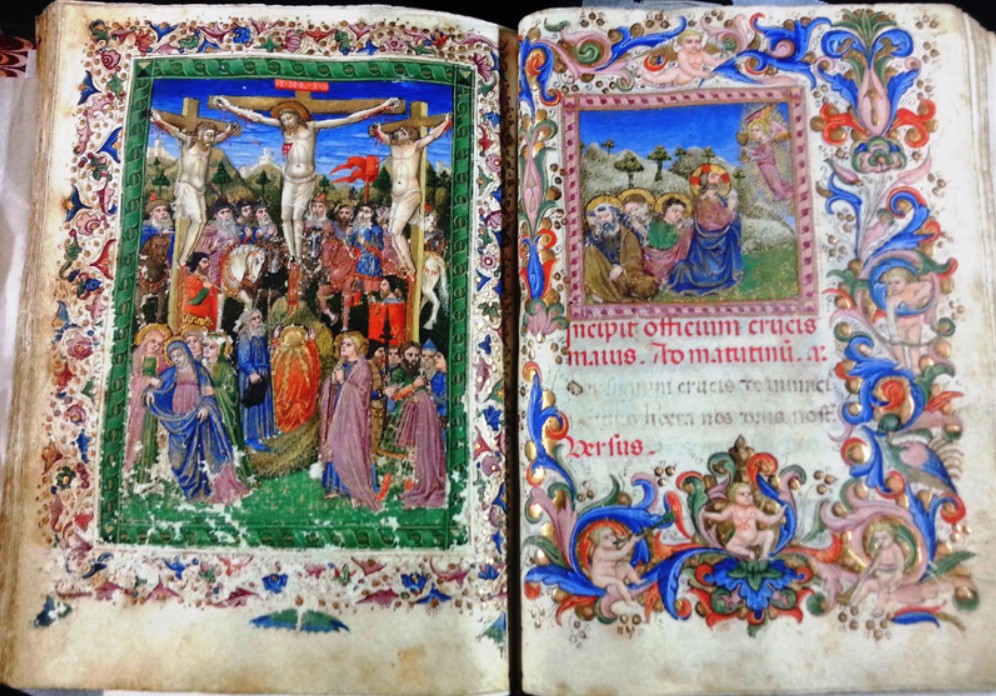 ncipit officium crucis
maius. Ad matutinũ. a
signum crucis de inimici
nos deus nost
Versus.